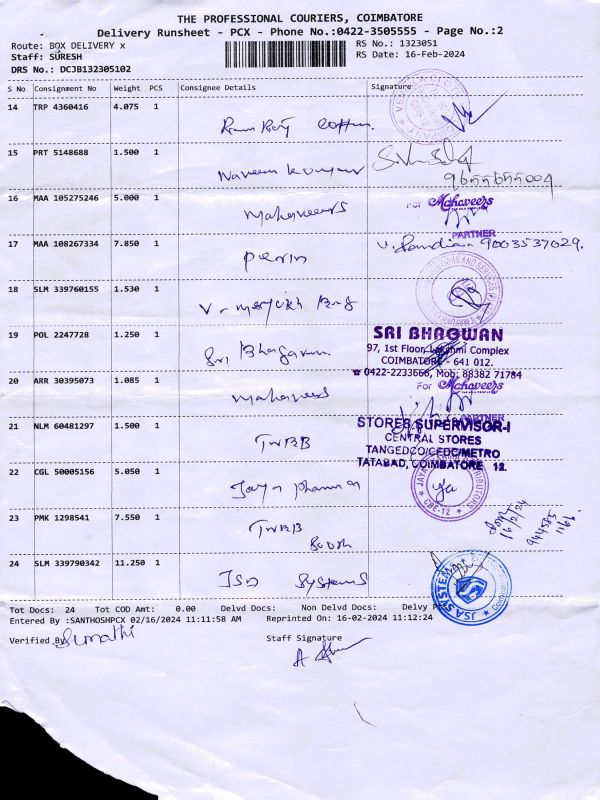 THE PROFESSIONAL COURIERS, COIMBATORE
Delivery Runsheet - PCX - Phone No.:0422-3505555 - Page No.:2
Route: BOX DELIVERY x
RS No.: 1323051
Staff: SURESH
RS Date: 16-Feb-2024
DRS No.: DCJB132305102
S No Consignment No Weight PCS Consignee Details Signature
14 TRP 4360416 4.075 1
15 PRT 5148688 1.500 1 Naveen kumar
9655655009
16 MAA 105275246 5.000 1 Mahaveers
For Mahaveers
PARTNER
17 MAA 108267334 7.850 1
V. Pandian 9003537029.
18 SLM 339760155 1.530 1
19 POL 2247728 1.250 1 Sri Bhagawan
SRI BHAGWAN
97, 1st Floor, Lakshmi Complex
COIMBATORE - 641 012.
0422-2233666, Mob: 88382 71784
20 ARR 30395073 1.085 1 Mahaveers
For Mahaveers
PARTNER
21 NLM 60481297 1.500 1 TNEB
STORES SUPERVISOR-I
CENTRAL STORES
TANGEDCO/CEDC/METRO
TATABAD, COIMBATORE 12.
22 CGL 50005156 5.050 1 Jaya Pharma
CBE-12
23 PMK 1298541 7.550 1 TNEB
16/2/24
24 SLM 339790342 11.250 1 JSA Systems
JSA SYSTEM
Tot Docs: 24 Tot COD Amt: 0.00 Delvd Docs: Non Delvd Docs: Delvy
Entered By :SANTHOSHPCX 02/16/2024 11:11:58 AM Reprinted On: 16-02-2024 11:12:24
Verified By Sumathi Staff Signature